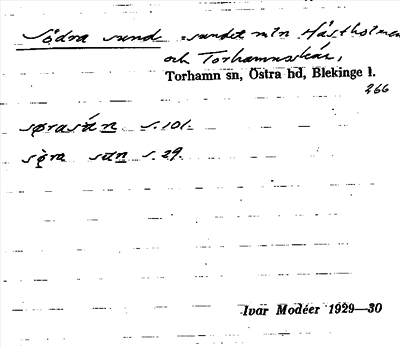 Södra sund sundet mln Hästholmen
och Torhamnsskär,
Torhamn sn, Östra hd, Blekinge l.
266
sørasán s. 101.
sọ̈ra san s. 29.
Ivar Modéer 1929—30